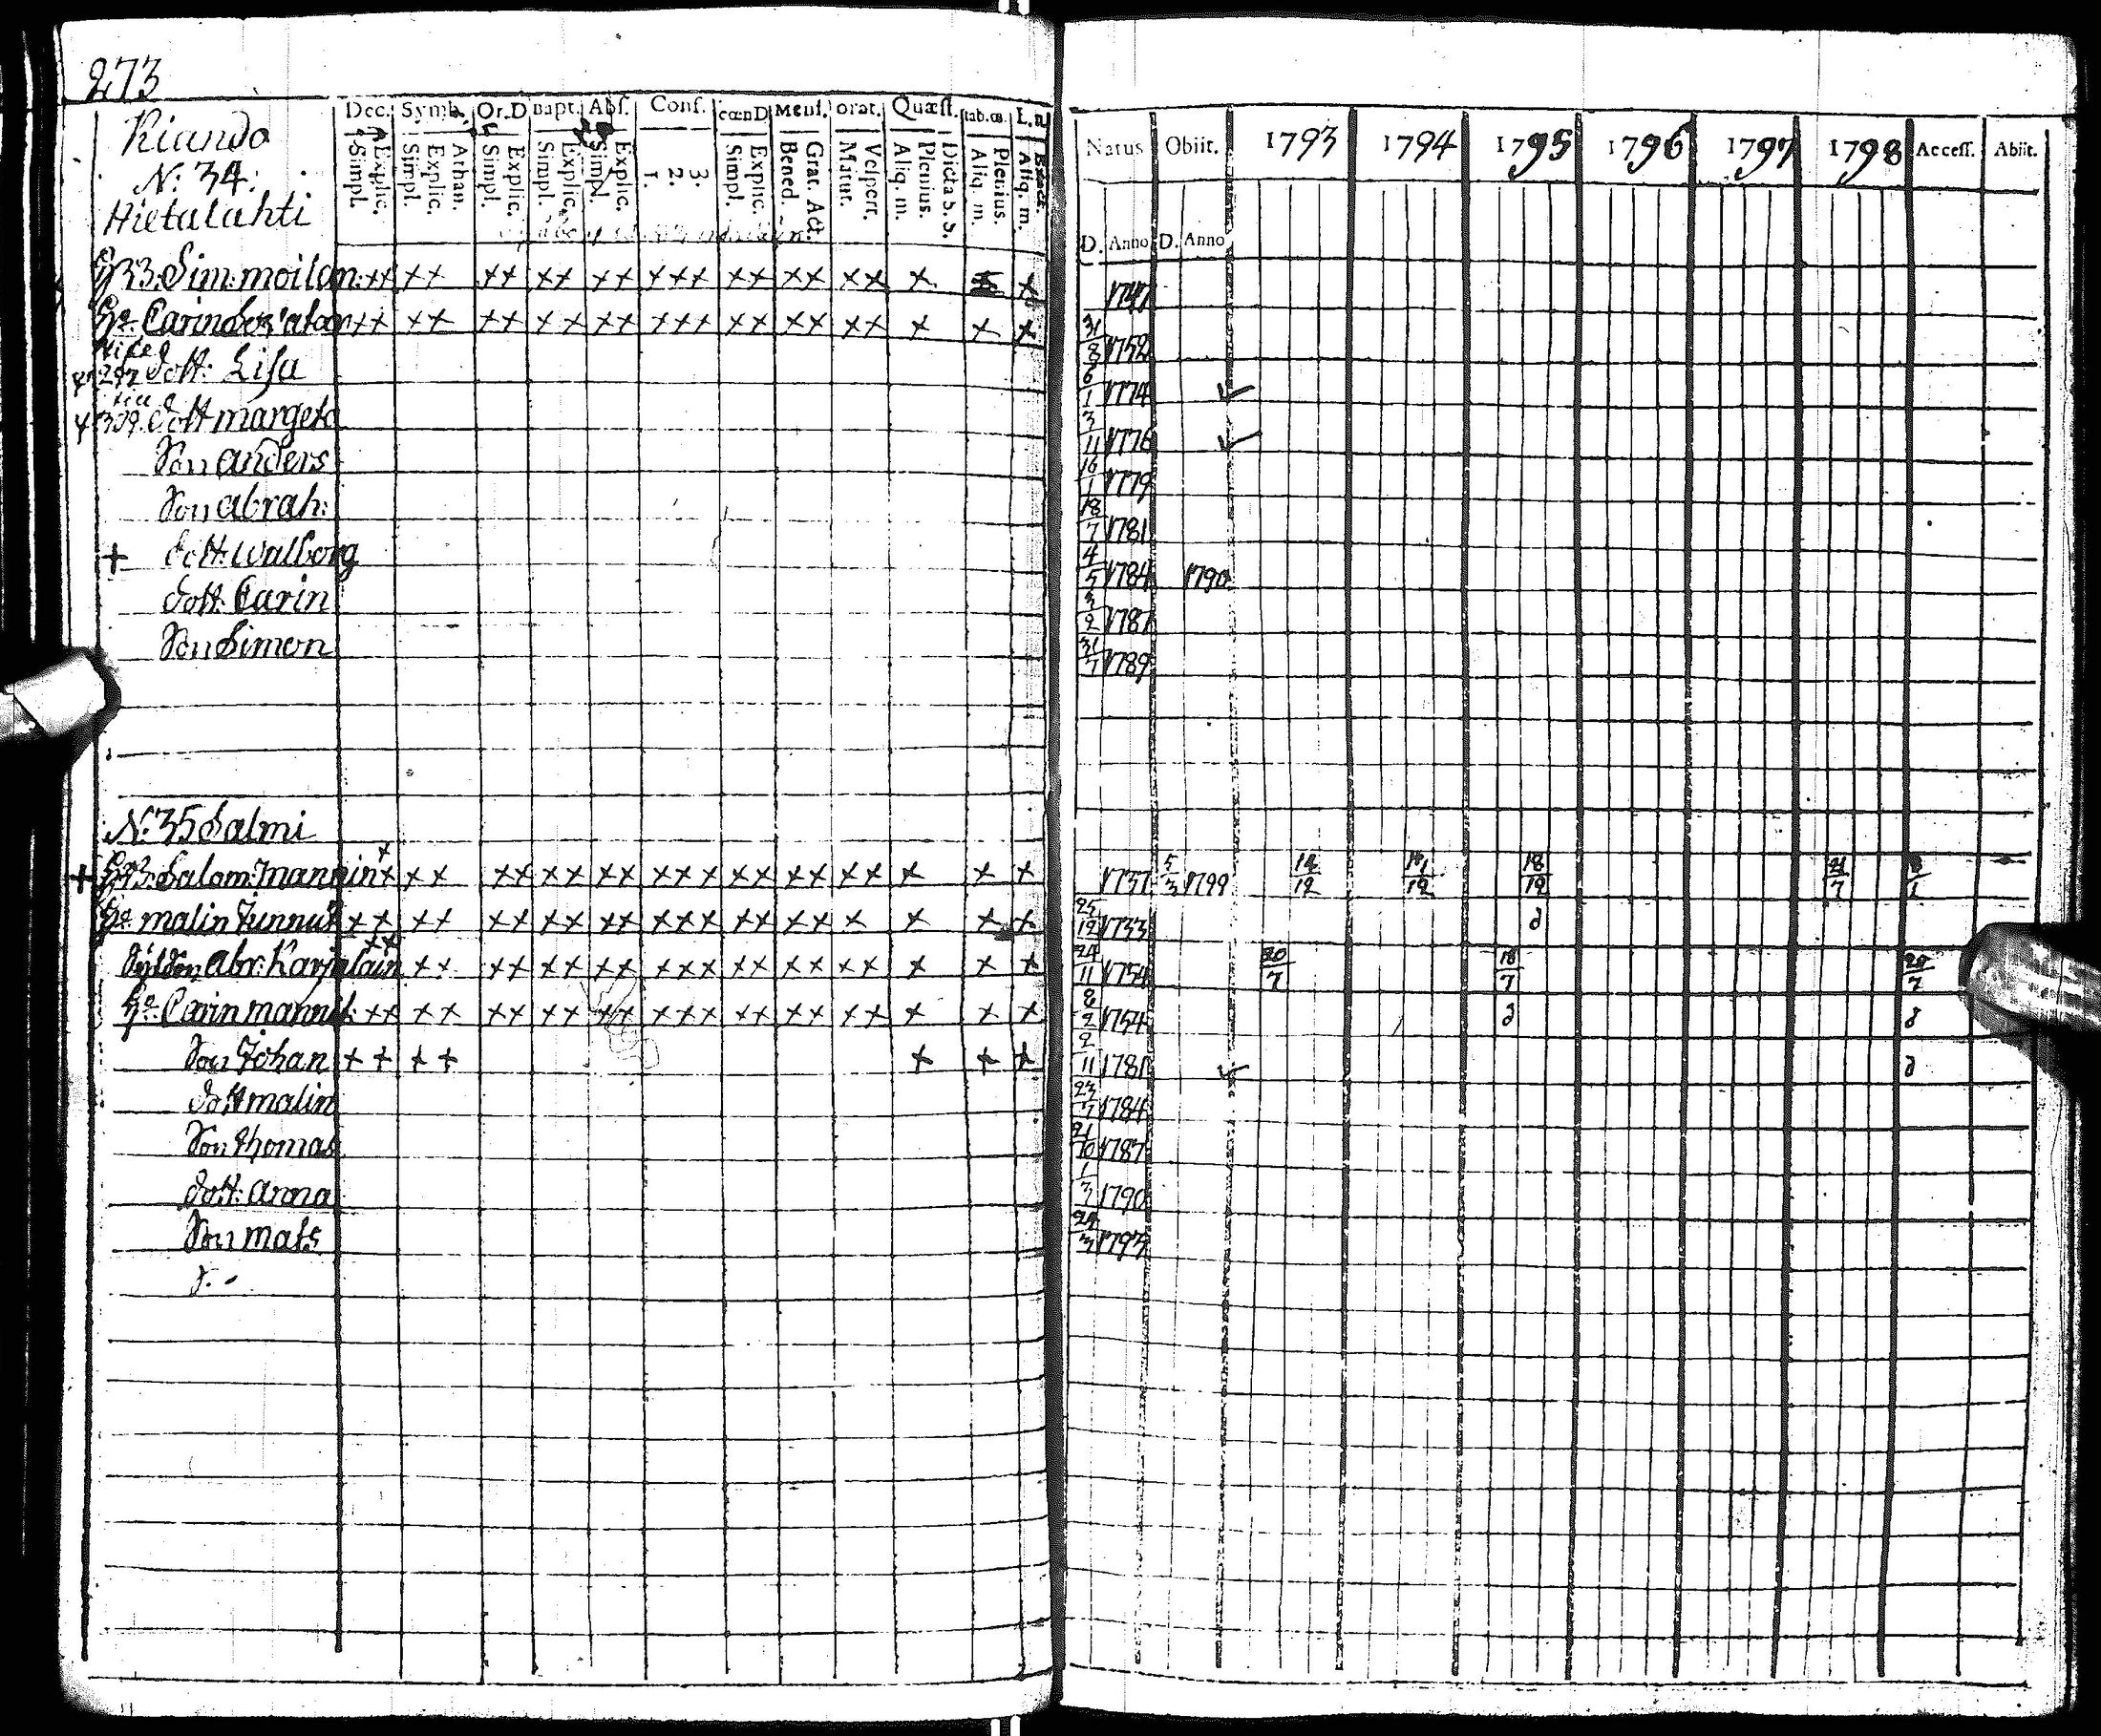 273
Dec. Symb. Or.D Bapt. Abs. Conf. cœnD Mens. orat. Quæst. tab.œ. L.n
Simpl. Explic. Simpl. Explic. Athan. Simpl. Explic. Simpl. Explic. Simpl. Explic. 1. 2. 3. Simpl. Explic. Bened. Grat. Act. Matut. Vespert. Aliq. m. Plenius. Dicta S. S. Aliq. m. Plenius. Aliq. m. Exact.
Natus Obiit. 1793 1794 1795 1796 1797 1798 Access. Abiit.
D. Anno D. Anno
Kiando
N: 34:
Hietalahti
33: Sim: moilan: ×× ×× ×× ×× ×× ××× ×× ×× ×× × × 1747
Carin ×× ×× ×× ×× ×× ××× ×× ×× ×× × × × 31/8 1752
297 dott: Lisa 6/1 1774 ✓
309. dott margeta 3/11 1776 ✓
Son anders 16/1 1779
Son abrah: 18/7 1781
+ dott: walborg 4/5 1784 1790
dott: Carin 3/2 1787
Son Simon 31/7 1789
N: 35 Salmi
+ Salom: Mannin × × ×× ×× ×× ×× ××× ×× ×× ×× × × × 1737 5/3 1799 12 19 18/19 7 1
malin ×× ×× ×× ×× ×× ××× ×× ×× × × × × 25/12 1733 d
Abr: Karjalain ×× ×× ×× ×× ×× ××× ×× ×× ×× × × × 24/11 1754 20/7 18/7 20/7
Carin mannit: ×× ×× ×× ×× ×× ××× ×× ×× ×× × × × 8/2 1754 d d
Son Johan ×× ×× × × × 2/11 1781 ✓ d
dott malin 23/7 1784
Son Thomas 21/10 1787
dott: anna 1/3 1790
Son mats 24/3 1793